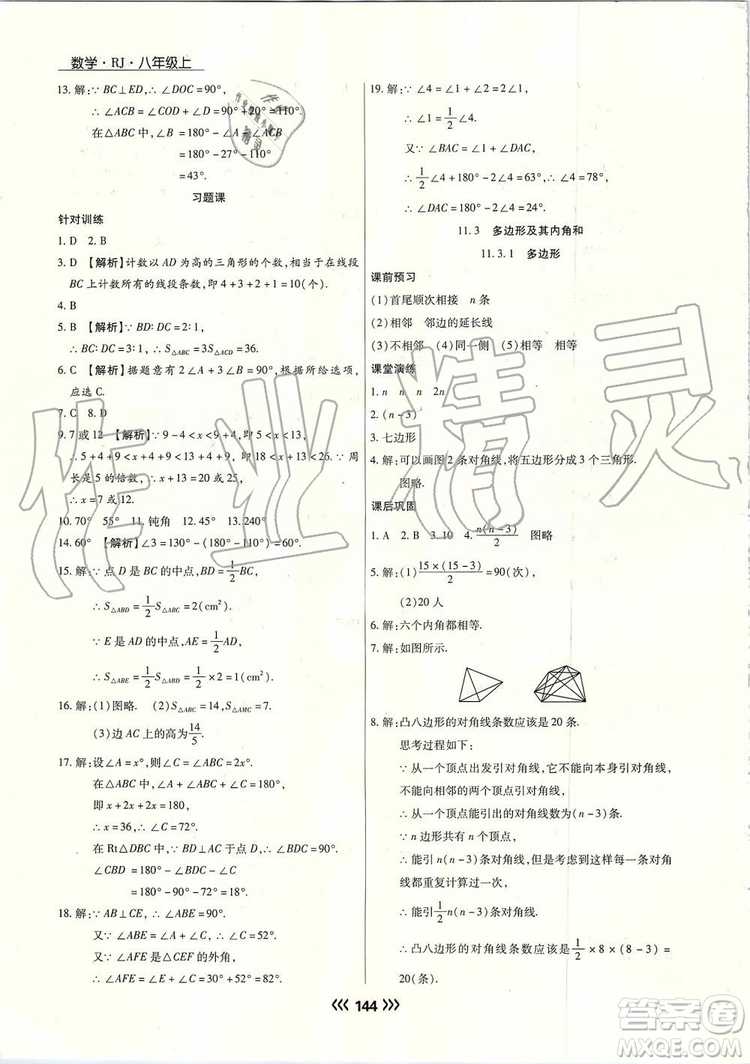 数学·RJ·八年级上
13. 解:∵ BC⊥ED,∴ ∠DOC=90°,
∴ ∠ACB=∠COD+∠D=90°+20°=110°.
在△ABC中,∠B=180°-∠A-∠ACB
=180°-27°-110°
=43°.
习题课
针对训练
1. D 2. B
3. D 【解析】计数以AD为高的三角形的个数,相当于在线段
BC上计数所有的线段条数,即4+3+2+1=10(个).
4. B
5. B 【解析】∵ BD:DC=2:1,
∴ BC:DC=3:1,∴ S△ABC=3S△ACD=36.
6. C 【解析】据题意有2∠A+3∠B=90°,
应选C.
7. C 8. D
9. 7或12 【解析】∵ 9-4<x<9+4,即5<x<13,
∴ 5+4+9<x+4+9<13+4+9,即18<周长<26. ∵ 周
长是5的倍数,
∴ x=7或12.
10. 70° 55° 11. 钝角 12. 45° 13. 240°
14. 60° 【解析】∠3=130°-(180°-110°)=60°.
15. 解:∵ 点D是BC的中点,BD=1/2BC,
∴ S△ABD=1/2S△ABC=2(cm²).
∵ E是AD的中点,AE=1/2AD,
∴ S△ABE=1/2S△ABD=1/2×2=1(cm²).
16. 解:(1)图略. (2)S△ABM=7.
(3)边AC上的高为14/5.
17. 解:设∠A=x°,则∠C=∠ABC=2x°.
在△ABC中,∠A+∠ABC+∠C=180°,
即x+2x+2x=180.
∴ x=36,∴ ∠C=72°.
在Rt△DBC中,∵ BD⊥AC于点D,∴ ∠BDC=90°,
∠CBD =180°-∠BDC-∠C
=180°-90°-72°=18°.
18. 解:AB⊥CE,∴ ∠ABE=90°.
又∵ ∠ABC=∠A+∠C,∴ ∠C=52°.
又∵ ∠AFE是△CEF的外角,
∴ ∠AFE=∠C+∠E=30°+52°=82°.
19. 解:∵ ∠4=∠1+∠2,∠1=∠2,
∴ ∠1=1/2∠4.
又∵ ∠BAC=∠DAC+∠1,
∴ 1/2∠4+180°-2∠4=63°,∴ ∠4=78°,
∴ ∠DAC=180°-2∠4=24°.
11.3 多边形及其内角和
11.3.1 多边形
课前预习
(1)首尾顺次相接 n条
(2)相邻 邻边的延长线
(3)不相邻 (4)同一侧 (5)相等 相等
课堂演练
1. n n n 2n
2. (n-3)
3. 七边形
4. 解:可以画图2条对角线,将五边形分成3个三角形.
图略.
课后巩固
1. A 2. B 3. 10 4. n(n-3)/2 图略
5. 解:(1)15×(15-3)/2=90(次),
(2)20人
6. 解:六个内角都相等.
7. 解:如图所示.
8. 解:凸八边形的对角线条数应该是20条.
思考过程如下:
∵ 从一个顶点出发引对角线,不能向本身引对角线,
不能向相邻的两个顶点引对角线,
∴ 从一个顶点能引出的对角线数为(n-3)条.
∵ n边形共有n个顶点,
∴ 能引n(n-3)条对角线,但是考虑到这些对角线
都重复计算过一次,
∴ 能引1/2n(n-3)条对角线.
∴ 凸八边形的对角线条数应该是1/2×8×(8-3)=
20(条).
144
作业精灵
答案圈
MXQE.COM